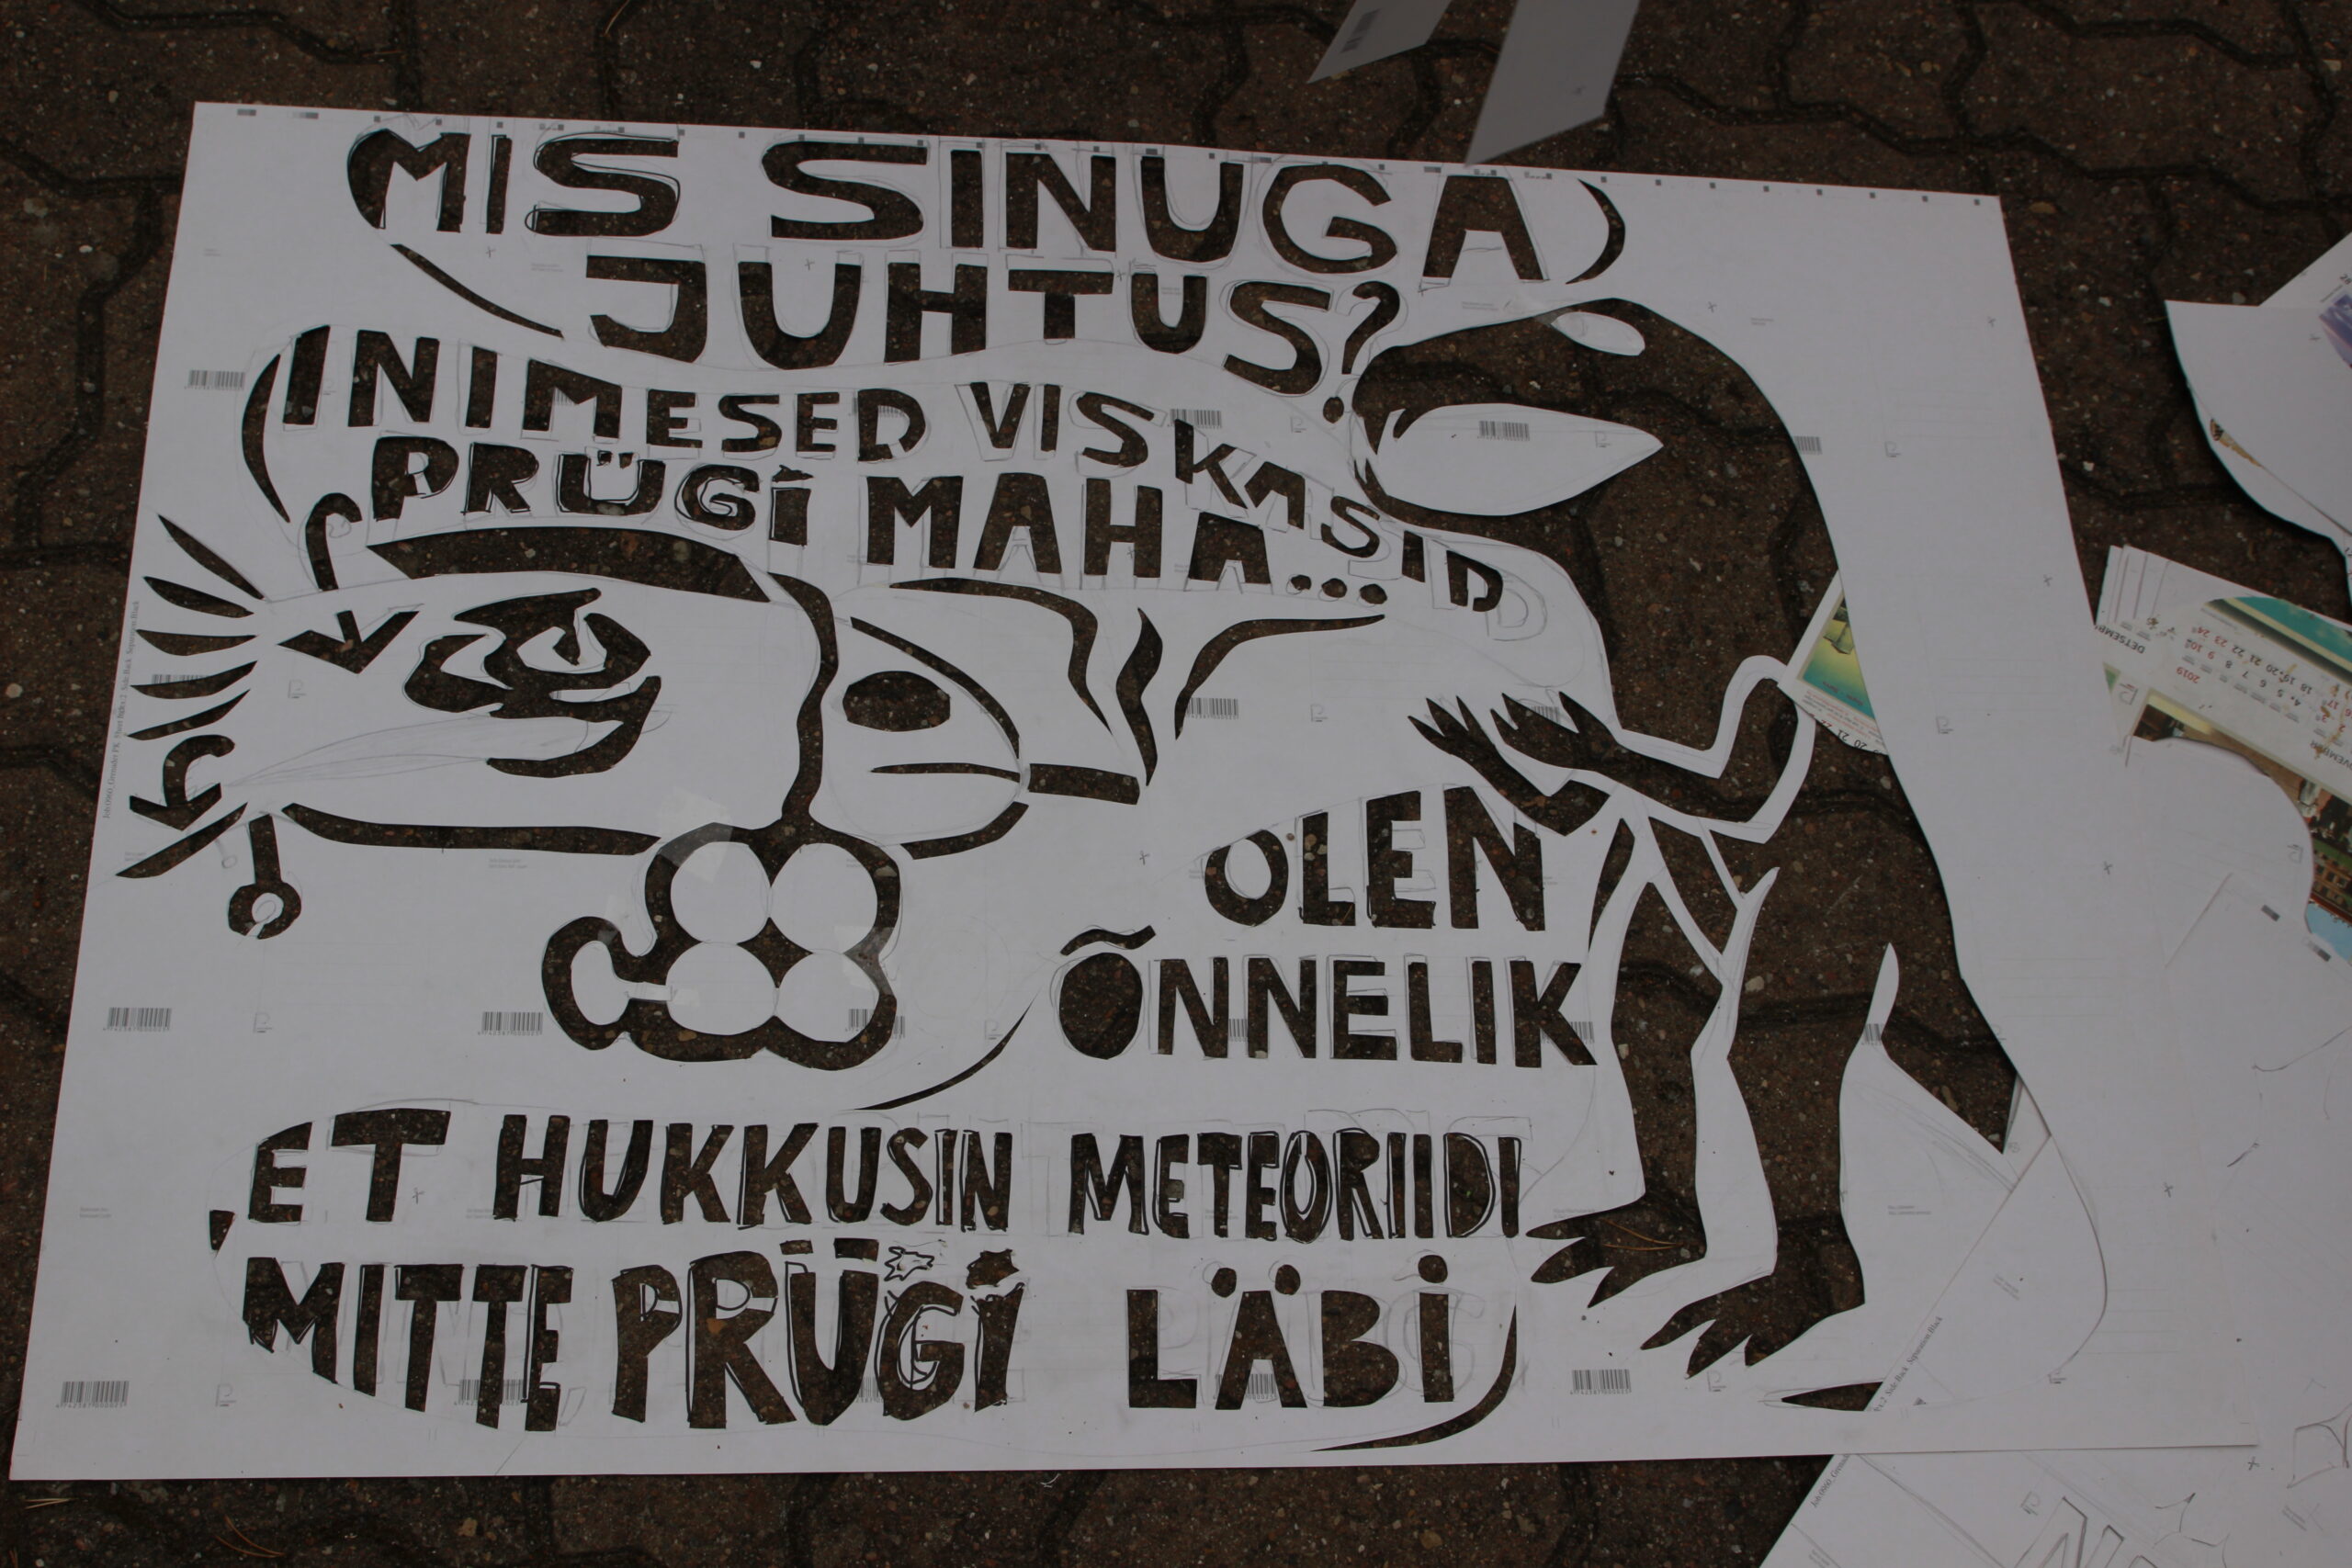 MIS SINUGA
JUHTUS?
INIMESED VISKASID
PRÜGI MAHA...
OLEN
ÕNNELIK
ET HUKKUSIN METEORIIDI
MITTE PRÜGI LÄBI
DETSEMB
2019